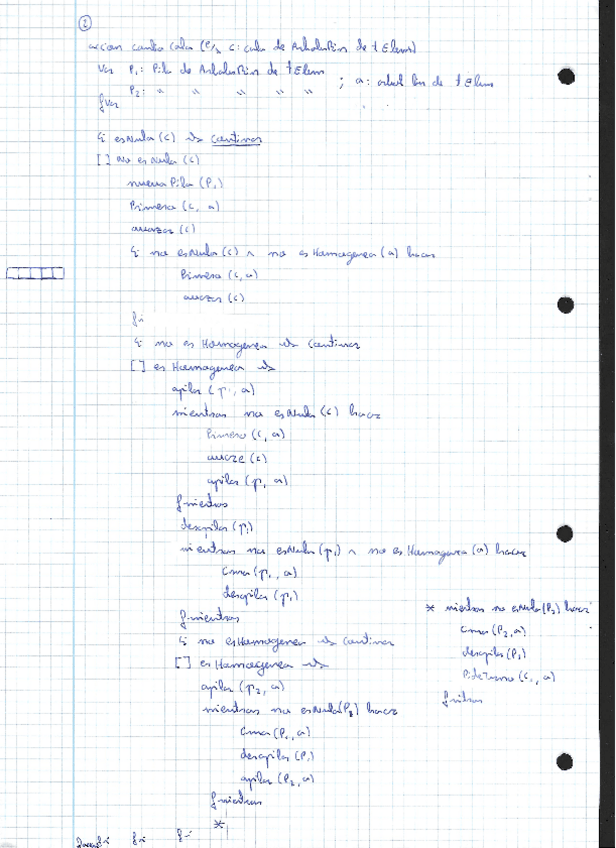 ②
accion cambia Cola (e/s c: cola de ArbolesBin de tElem)
Var P1: Pila de ArbolesBin de tElem ; a: arbol bin de tElem
P2: " " " " "
fvar
Si esNula (c) → continuar
[] no esNula (c)
nuevaPila (P1)
Primero (c, a)
avanzar (c)
Si no esNula (c) ∧ no esHomogeneo (a) hacer
Primero (c, a)
avanzar (c)
fi
Si no es Homogeneo → continuar
[] es Homogeneo →
apilar (p1, a)
mientras no esNula (c) hacer
Primero (c, a)
avanzar (c)
apilar (p1, a)
fmientras
desapilar (p1)
mientras no esNula (p1) ∧ no esHomogeneo (a) hacer
Cima (p1, a)
desapilar (p1)
fmientras
Si no esHomogeneo → continuar
[] es Homogeneo →
apilar (p2, a)
mientras no esNula (P1) hacer
Cima (P1, a)
desapilar (P1)
apilar (P2, a)
fmientras
*
fi fi
* mientras no esNula (P2) hacer
Cima (P2, a)
desapilar (P2)
PideTurno (c, a)
fmientras